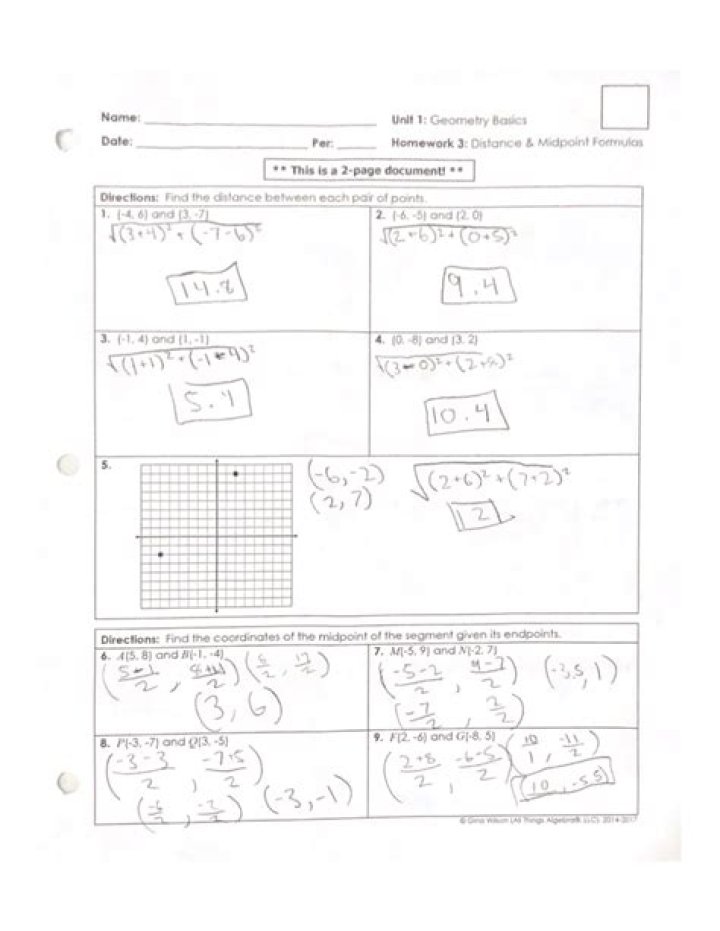 Name:
Unit 1: Geometry Basics
Date: Per:
Homework 3: Distance & Midpoint Formulas
** This is a 2-page document! **
Directions: Find the distance between each pair of points.
1. (-4, 6) and (3, -7)
√(3+4)² + (-7-6)²
14.8
2. (-6, -5) and (2, 0)
√(2+6)² + (0+5)²
9.4
3. (-1, 4) and (1, -1)
√(1+1)² + (-1-4)²
5.4
4. (0, -8) and (3, 2)
√(3-0)² + (2+8)²
10.4
5.
(-6, -2)
(2, 7)
√(2+6)² + (7+2)²
12
Directions: Find the coordinates of the midpoint of the segment given its endpoints.
6. A(5, 8) and B(-1, -4)
(3, 6)
7. M(-5, 9) and N(-2, 7)
(-5-2/2, 9-7/2) (-3.5, 1)
(-7/2, 2/2)
8. P(-3, -7) and Q(3, -5)
(-3-3/2, -7+5/2)
(-6/2, -2/2) (-3, -1)
9. F(2, -6) and G(-8, 5)
(2+8/2, -6-5/2) (10/1, -11/2)
(10, -5.5)
© Gina Wilson (All Things Algebra®, LLC), 2014-2017